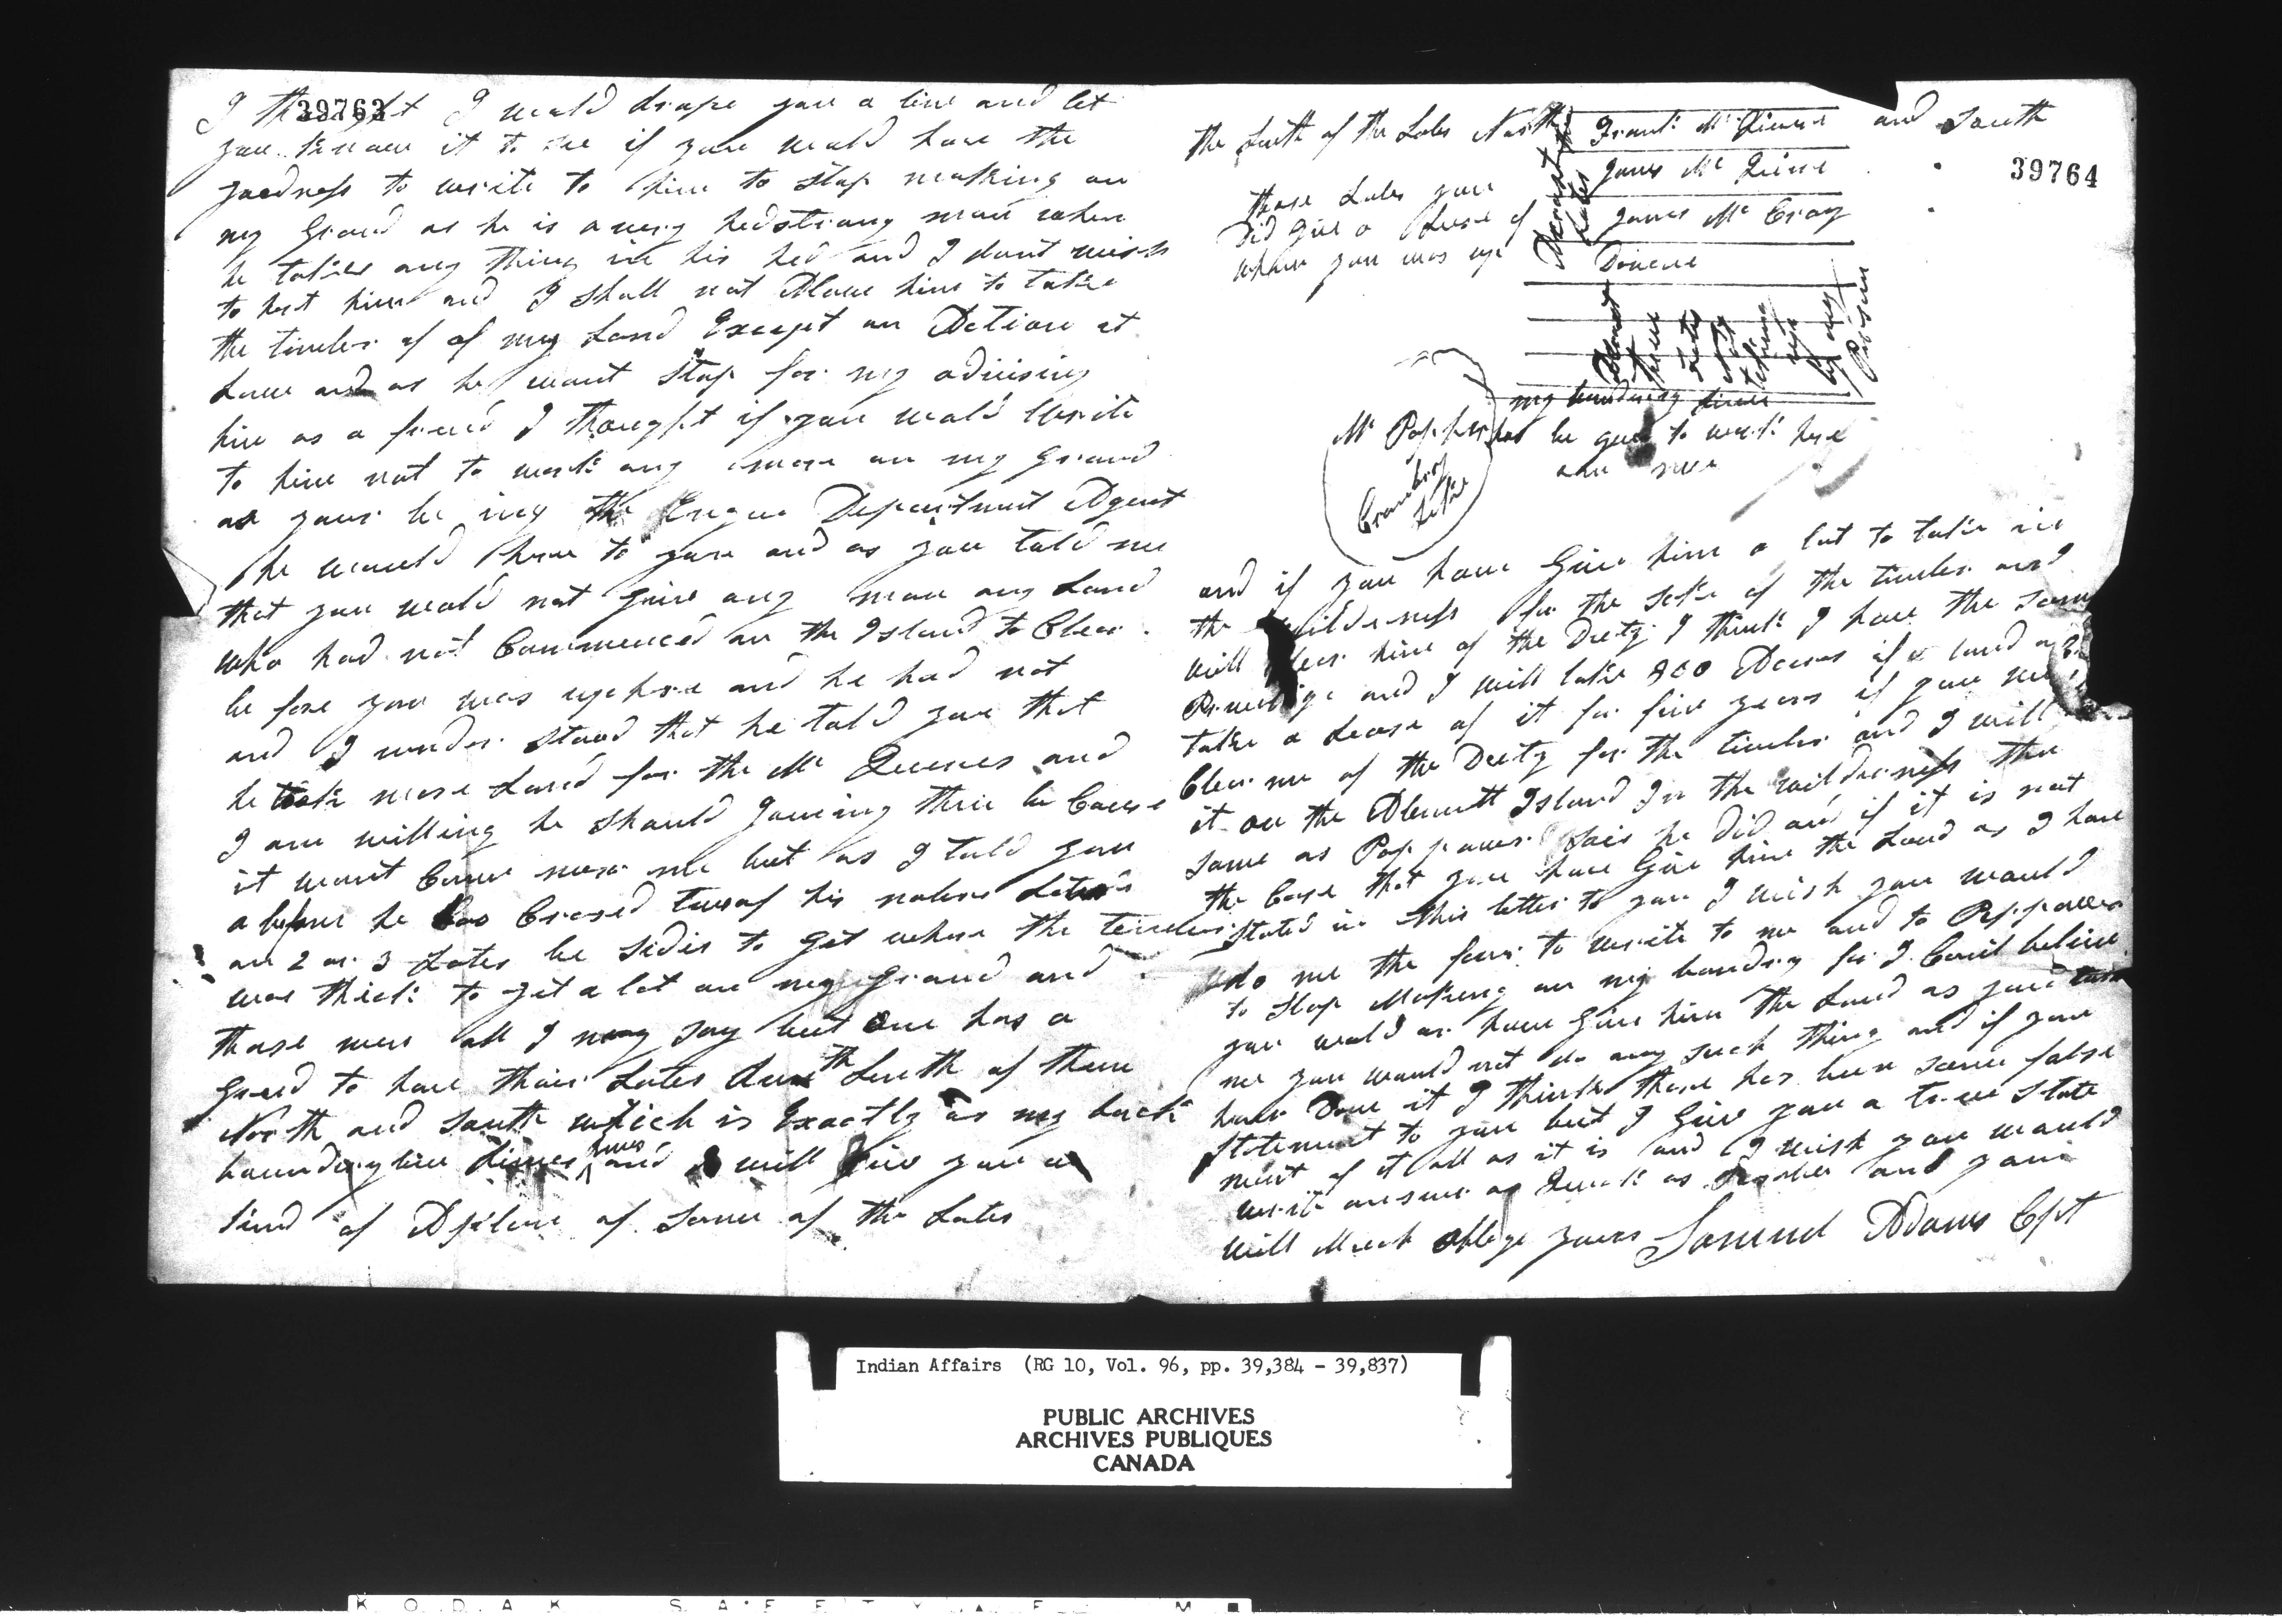 39763
I thought I wald drape you a line and let
you know it to see if you wald have the
goodness to write to him to stop making on
my Ground as he is a very hedstrong man when
he takes any thing in his hed and I dont wish
to hurt him and I shall not Alow him to take
the timber of of my Land Except an Action at
Law and as he wount stop for my advising
him as a friend I thought if you wald write
to him not to work any more on my Ground
as your be ing the Department Agent
he would to you and as you told me
that you wold not give any man any Land
who had not Commenced on the Island to Clear
be fore you was up here and he had not
and I under stood that he told you that
he took more Land for the Mc Queens and
I am willing he should joining them be Cause
it wount Come near me but as I told you
a bove he has Crosed two of his nabors Lotes
on 2 or 3 Lotes be sides to get where the timber
was thick to git a lot on my ground and
those men all I may say but one has a
greed to have their Lotes Run the Lenth of them
North and South which is Exactly as my back
boundry line Runs and I will Give you a
kind of A plan of some of the Lotes
39764
the Lenth of the Lotes North and South
Frank Mc Queen
James Mc Queen
James Mc Cray
Donene
those Lotes you
Did give a Lease of
when you was up
my boundry line
Mr Poppers has be gun to work here
Cranbury
Lake
and if you have Give him a lot to take in
the wilderness for the sake of the timber and
will Clear him of the Duty I think I have the same
Privelige and I will take 200 Acres of land
take a Lease of it for five years if you
Clear me of the Duty for the timber and I will
it on the Island In the wilderness the
same as Poppowers sais he did and if it is not
the Case that you have Give him the Land as I have
Stated in this letter to you I wish you would
do me the favor to write to me and to Poppowers
to stop Making on my boundry for I Cant belive
you wold have Give him the Land as you told
me you would not do any such thing and if you
have Done it I think there has been some false
Statement to you but I Give you a true State
ment of it all as it is and I wish you would
write answer as Quick as Posible and you
will Much oblige yours Samuel Adams Cpt
Indian Affairs (RG 10, Vol. 96, pp. 39,384 - 39,837)
PUBLIC ARCHIVES
ARCHIVES PUBLIQUES
CANADA
KODAK SAFETY